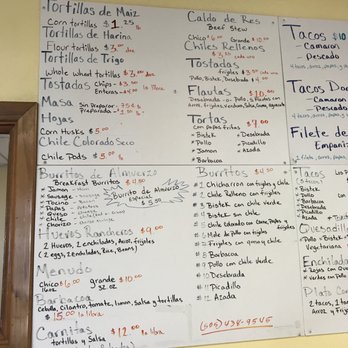 Tortillas de Maiz
Corn tortillas $1.25 lb
Tortillas de Harina
Flour tortillas $3.00 doz
Tortillas de Trigo
Whole Wheat tortillas $3.00 doz
Tostadas Chips - $3.00
Enteras - $4.00 la libra
Masa Sin Preparar - 75¢ lb
Preparada - $1.50 lb
Hojas
Corn Husks $5.00
Chile Colorado Seco
Chile Pods $5.00
Caldo de Res
Beef Stew
Chico $6.00 Grande $10.00
Chiles Rellenos
Tostadas
frijoles $3.00
Pollo, Bistek, Desebrada $4.00
Flautas $10.00
Tortas
con papas fritas $7.00
Bistek
Pollo
Jamon
Barbacoa
Desebrada
Picadillo
Asada
Tacos $10
Camaron
Pescado
Tacos Do
Camaron
Desebrada
Pescado
Filete de
Empaniz
Burritos de Almuerzo
Breakfast Burritos $4.00
Jamon
Sausage
Tocino
Papas
Queso
Chile
Chorizo
Burrito de Almuerzo
Especial
Huevos Rancheros $9.00
2 Huevos, 2 enchiladas, Arroz, frijoles
(2 eggs, 2 enchiladas, Rice, Beans)
Menudo
Chico $6.00 grande $10.00
32 oz.
Barbacoa
Cebolla, Cilantro, tomate, limon, Salsa y tortillas
$15.00 la libra
Carnitas $12.00 la libra
tortillas y Salsa
Burritos $4.50
#1 Chicharron con frijoles y chile
#2 Chile Relleno con frijoles y chile
#3 Bistek con chile verde
#4 Bistek sin chile
#5 Chile Colorado con Carne, Papas y frijoles
#6 Mole de Pollo con frijoles
#7 Frijoles con queso y chile
#8 Barbacoa
#9 Pollo con chile verde
#10 Desebrada
#11 Picadillo
#12 Asada
(505) 438-9545
Tacos
Bistek
Pollo
Asada
Barbacoa
Desebrada
Picadillo
Quesadilla
Pollo
Bistek
Vegetariana
Enchilada
Rojas con Queso
Verdes con
Plato Com
2 tacos, 2
Arroz y Frijol